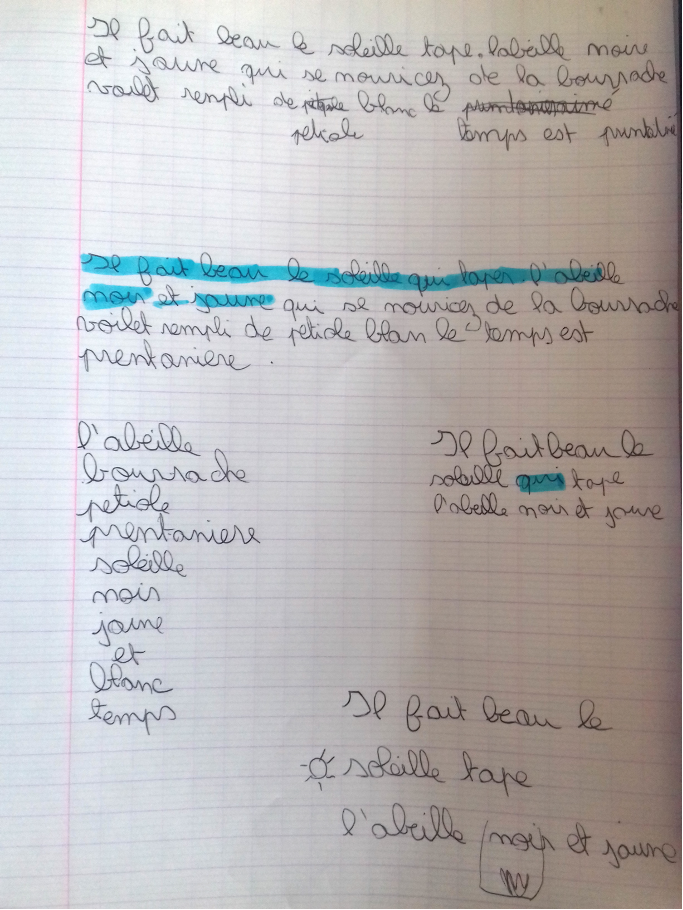 Il fait beau le soleille tape. labeille noire
et jaune qui se nourices de la bourrache
voilet rempli de blanc le
petiole temps est
Il fait beau le soleille qui taper l'abeille
noir et jaune qui se nourices de la bourrache
voilet rempli de petiole blan le temps est
prentaniere .
l'abeille
bourrache
petiole
prentaniere
soleille
noir
jaune
et
blanc
temps
Il fait beau le
soleille qui tape
l'abelle noir et jaune
Il fait beau le
soleille tape
l'abeille noir et jaune